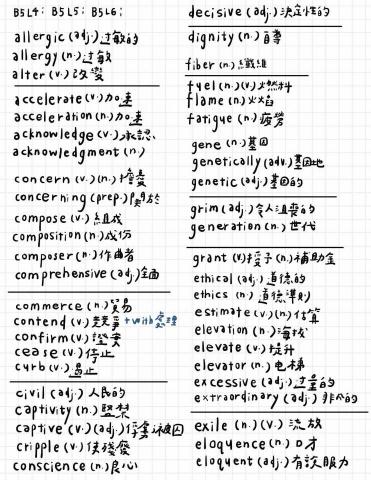 B5L4; B5L5; B5L6;
allergic (adj.) 過敏的
allergy (n.) 過敏
alter (v.) 改變
accelerate (v.) 加速
acceleration (n.) 加速
acknowledge (v.) 承認
acknowledgment (n.)
concern (v.)(n.) 擔憂
concerning (prep.) 關於
compose (v.) 組成
composition (n.) 成份
composer (n.) 作曲者
comprehensive (adj.) 全面
commerce (n.) 貿易
contend (v.) 競爭 +with 處理
confirm (v.) 證實
cease (v.) 停止
curb (v.) 遏止
civil (adj.) 人民的
captivity (n.) 監禁
captive (v.)(adj.) 俘虜
cripple (v.) 使殘廢
conscience (n.) 良心
decisive (adj.) 決定性的
dignity (n.) 自尊
fiber (n.) 纖維
fuel (n.)(v.) 燃料
flame (n.) 火焰
fatigue (n.) 疲勞
gene (n.) 基因
genetically (adv.) 基因地
genetic (adj.) 基因的
grim (adj.) 令人沮喪的
generation (n.) 世代
grant (v.) 授予 (n.) 補助金
ethical (adj.) 道德的
ethics (n.) 道德準則
estimate (v.)(n.) 估算
elevation (n.) 海拔
elevate (v.) 提升
elevator (n.) 电梯
excessive (adj.) 过量的
extraordinary (adj.) 非凡的
exile (n.)(v.) 流放
eloquence (n.) 口才
eloquent (adj.) 有說服力